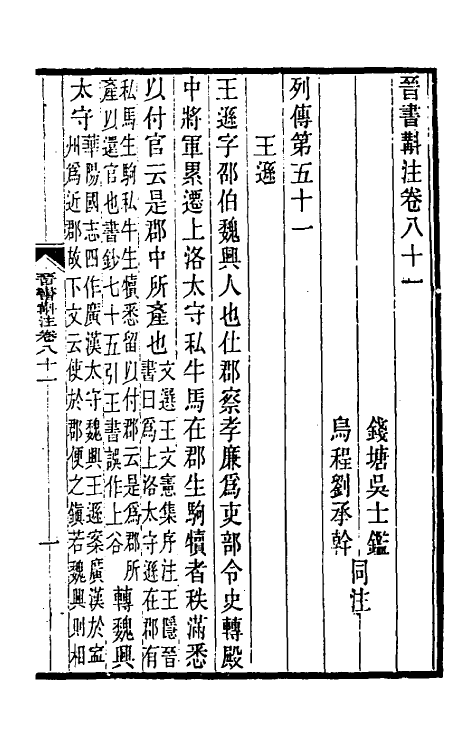 晉書斠注卷八十一
錢塘吳士鑑
烏程劉承幹
同注
列傳第五十一
王遜
王遜字邵伯魏興人也仕郡察孝廉爲吏部令史轉殿
中將軍累遷上洛太守私牛馬在郡生駒犢者秩滿悉
以付官云是郡中所產也
文選王文憲集序注王隱晉
書曰爲上洛太守遜在郡有
私馬生駒私牛生犢悉留以付郡云是爲郡所
產以還官也書鈔七十五引王書誤作上谷
轉魏興
太守
華陽國志四作廣漢太守魏興王遜案廣漢於寍
州爲近郡故下文云使於郡便之鎭若魏興則相
晉書斠注卷八十一
一